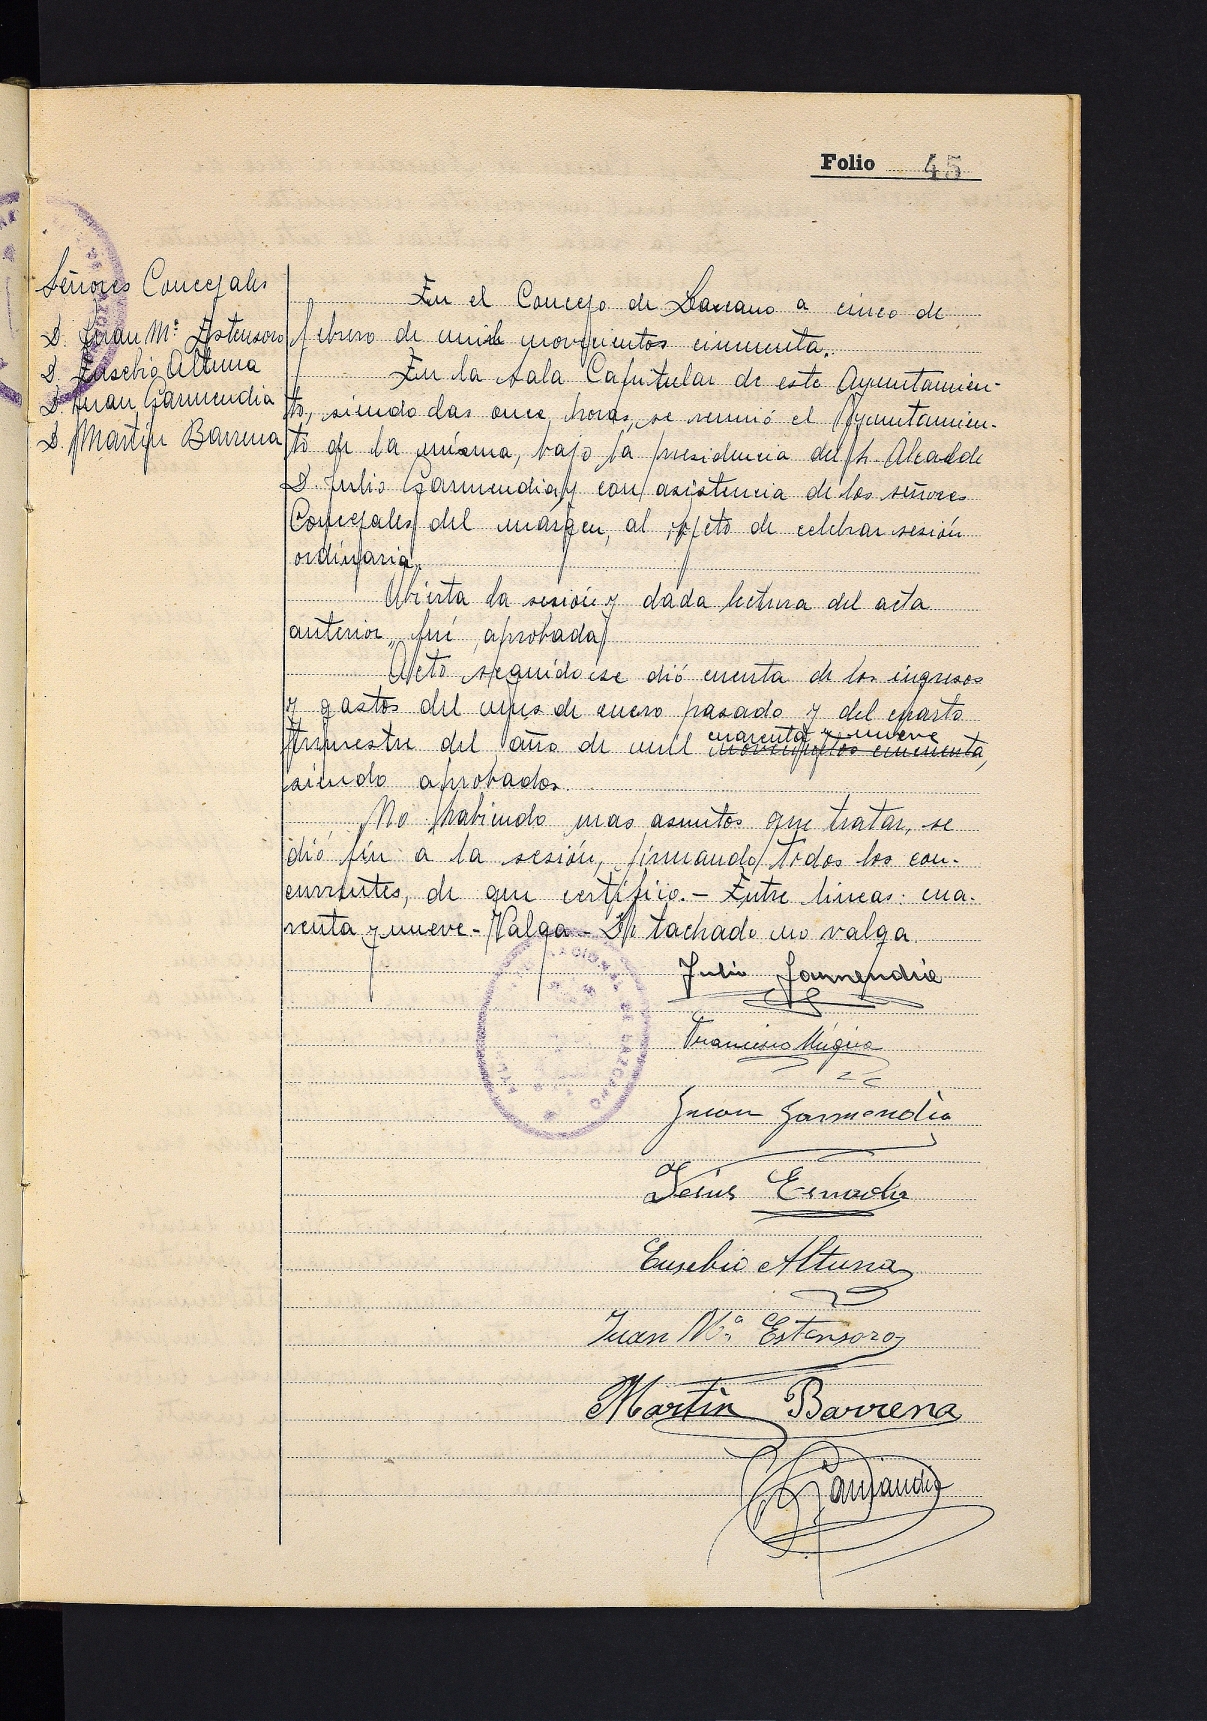 Folio 45
Señores Concejales
D. Juan Mª Estensoro
D. Eusebio Altuna
D. Juan Garmendia
D. Martín Barrena
En el Concejo de Lazcano a cinco de
febrero de mil novecientos cincuenta.
En la Sala Capitular de este Ayuntamien-
to, siendo las once horas, se reunió el Ayuntamien-
to de la misma, bajo la presidencia del Sr. Alcalde
D. Julio Garmendia y con asistencia de los señores
Concejales del margen, al objeto de celebrar sesión
ordinaria.
Abierta la sesión y dada lectura del acta
anterior, fué aprobada
Acto seguido se dió cuenta de los ingresos
y gastos del mes de enero pasado y del cuarto
cuarenta y nueve
trimestre del año de mil novecientos cincuenta,
siendo aprobados.
No habiendo mas asuntos que tratar, se
dió fin a la sesión, firmando todos los con-
currentes, de que certifico.- Entre lineas: cua-
renta y nueve - Valga - Lo tachado no valga.
Julio Garmendia
Francisco Múgica
Juan Garmendia
Jesús
Eusebio Altuna
Juan Mª Estensoro
Martín Barrena
NACIONAL DE LAZCANO